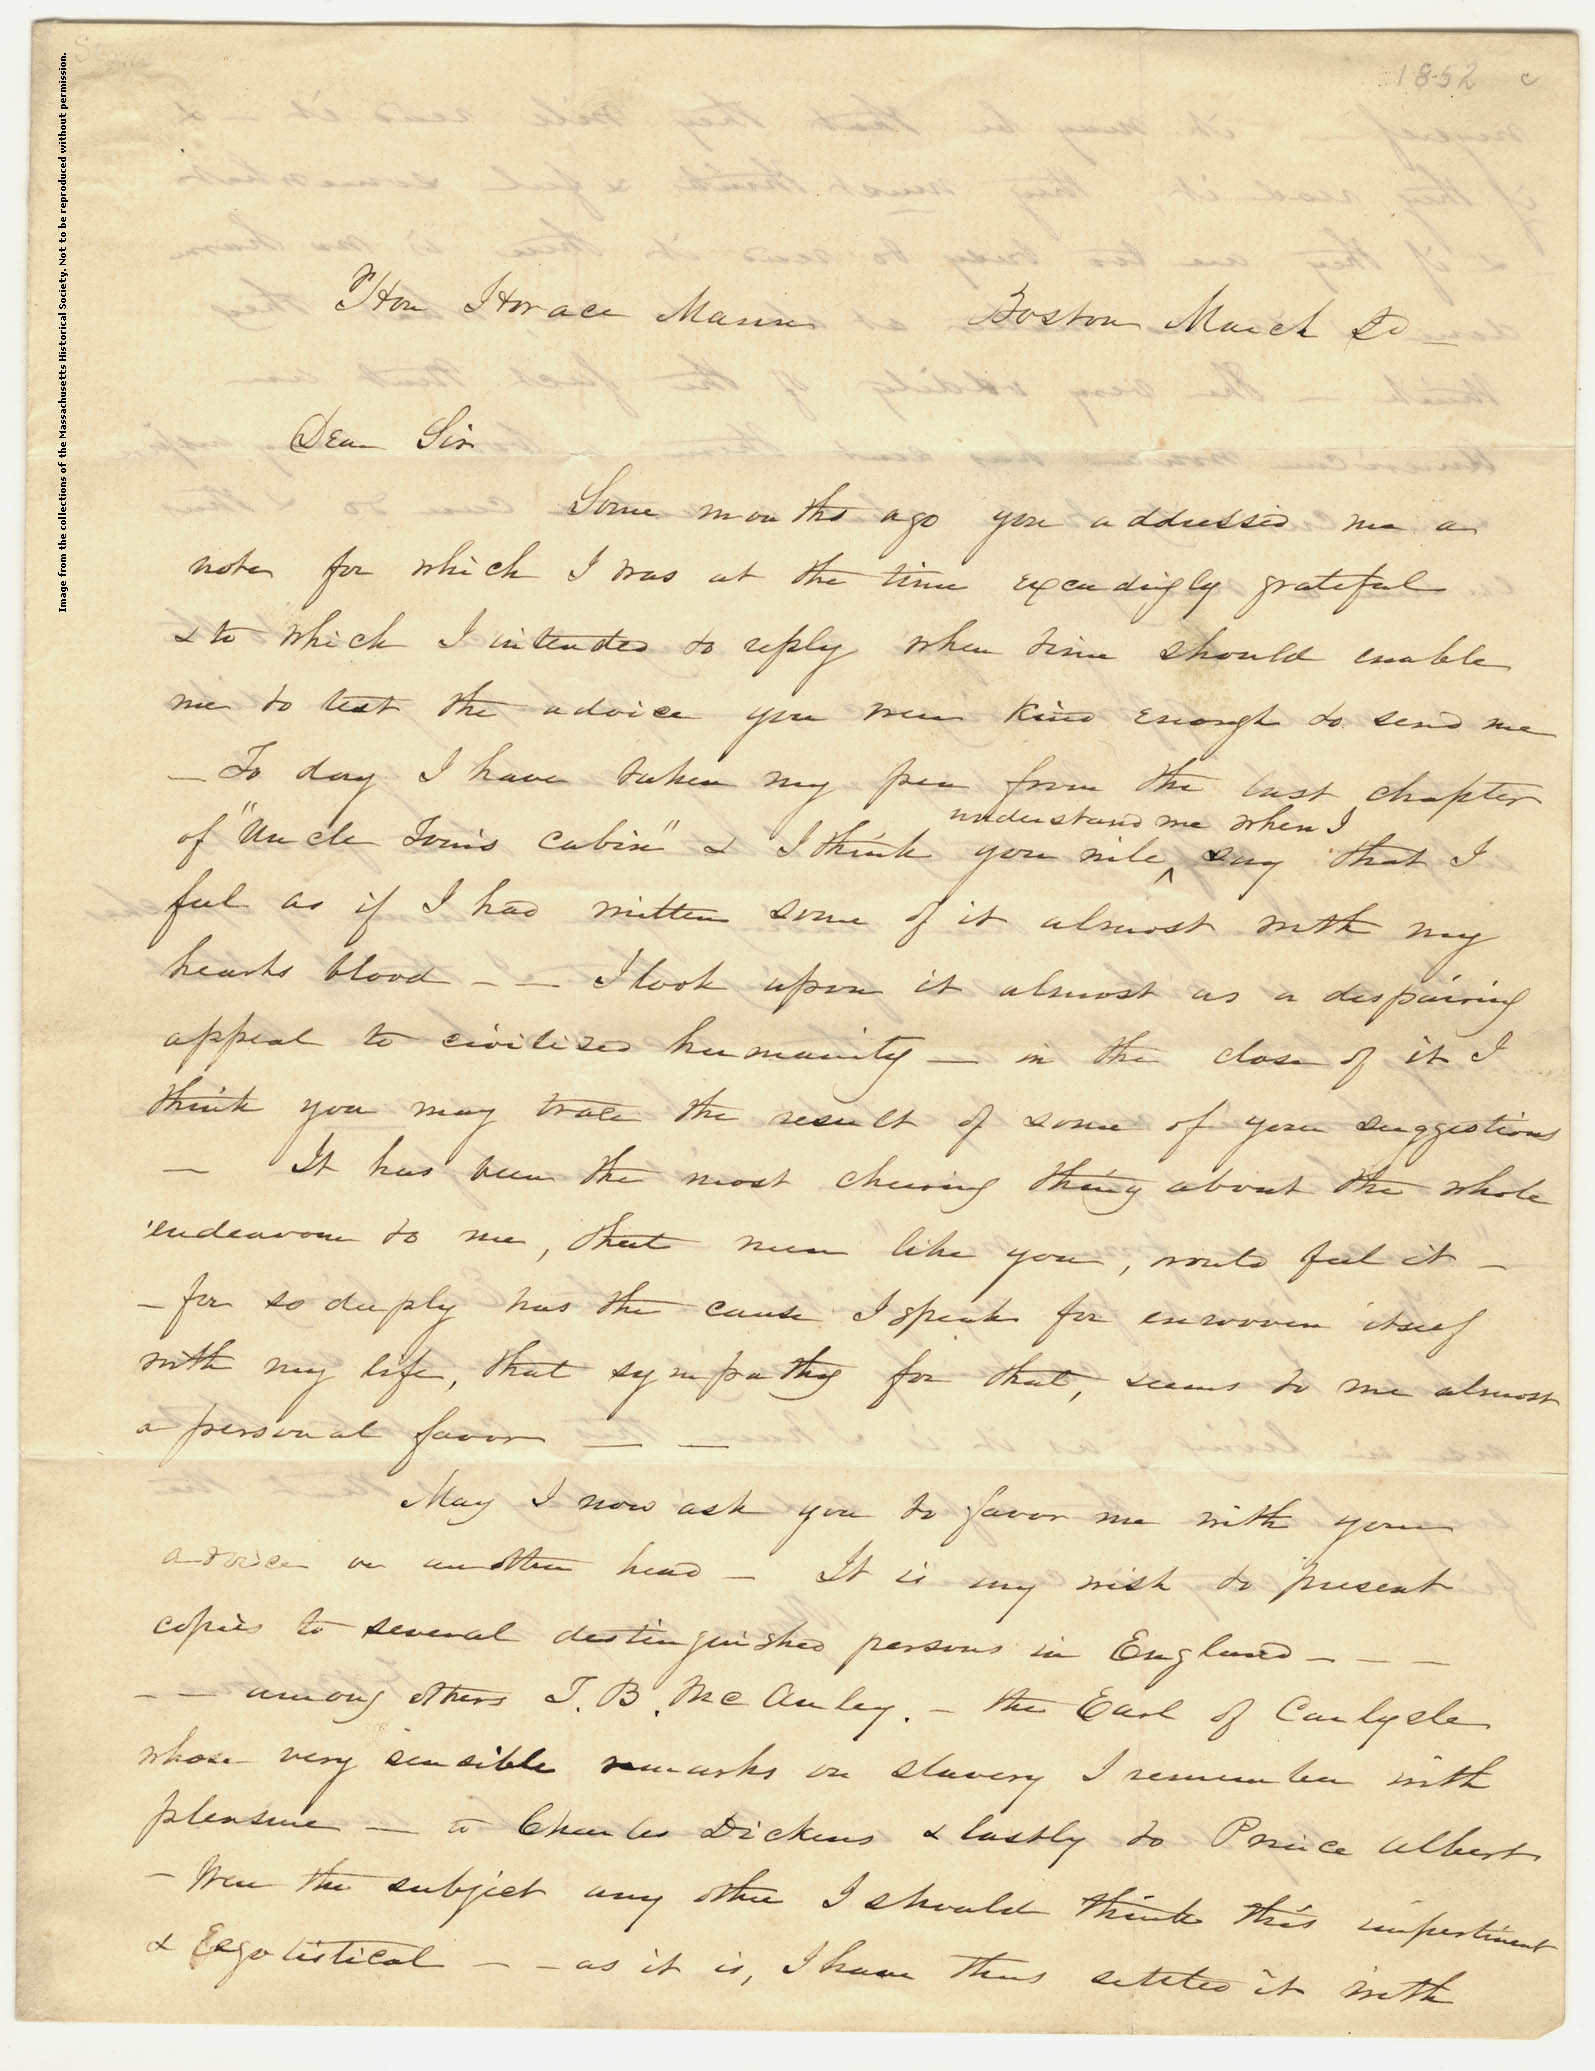 Image from the collections of the Massachusetts Historical Society. Not to be reproduced without permission.
1852 c
Hon Horace Mann Boston March
Dear Sir
Some months ago you addressed me a
note for which I was at the time exceedigly grateful
& to which I intended to reply when time should enable
me to test the advice you were kind enough to send me
— To day I have taken my pen from the last chapter
of "Uncle Tom's cabin" & I think you will ^ understand me when I say that I
feel as if I had written some of it almost with my
hearts blood — — I look upon it almost as a despairing
appeal to civilized humanity — in the close of it I
think you may trace the result of some of your suggestions
— It has been the most cheering thing about the whole
endeavour to me, that men like you, would feel it —
— for so deeply has the cause I speak for enwoven itself
with my life, that sympathy for that, seems to me almost
a personal favor — —
May I now ask you to favor me with your
advice on another head — It is my wish to present
copies to several destinguished persons in England — — —
— — among others T. B. McAuley. — the Earl of Carlysle
whose very sensible remarks on slavery I remember with
pleasure — to Charles Dickens & lastly to Prince Albert
— Were the subject any other I should think this impertinent
& Egotistical — — as it is, I have thus settled it with